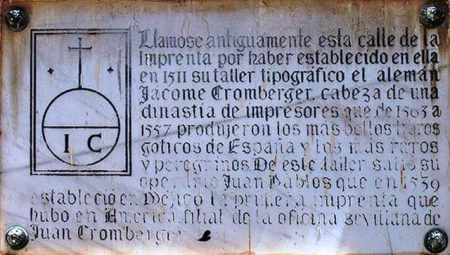 Llamose antiguamente esta calle de la
Imprenta por haber establecido en ella
en 1511 su taller tipográfico el alemán
Jacome Cromberger, cabeza de una
dinastia de impresores que de 1503 a
1557 produjeron los mas bellos libros
goticos de España y los mas raros
y peregrinos. De este taller salio su
operario Juan Pablos que en 1539
establecio en Mejico la primera imprenta que
hubo en America, filial de la oficina sevillana de
Juan Cromberger
I C